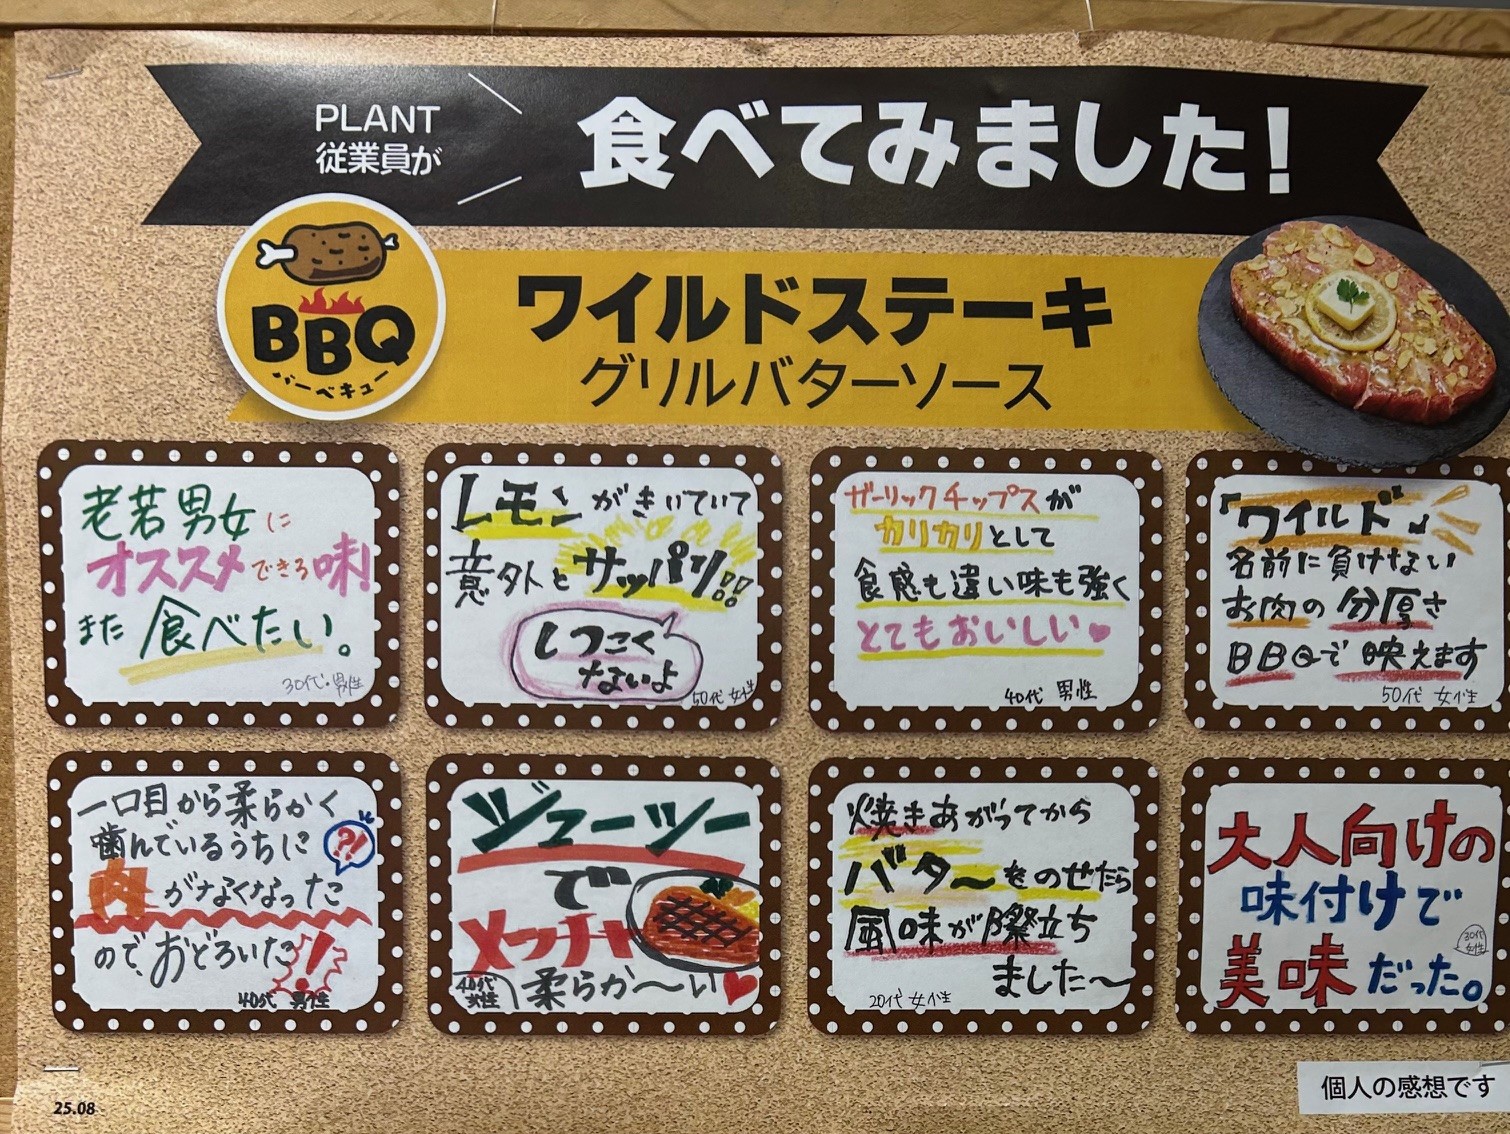 PLANT
従業員が
食べてみました!
BBQ
バーベキュー
ワイルドステーキ
グリルバターソース
老若男女に
オススメできる味!
また食べたい。
30代・男性
レモンがきいていて
意外とサッパリ!!
しつこく
ないよ
50代 女性
ガーリックチップスが
カリカリとして
食感も違い味も強く
とてもおいしい♥
40代 男性
「ワイルド」
名前に負けない
お肉の分厚さ
BBQで映えます
50代 女性
一口目から柔らかく
噛んでいるうちに
?!
肉がなくなった
ので、おどろいた!
40代 男性
ジューシー
で
メッチャ
柔らか〜い♥
40代
女性
焼きあがってから
バターをのせたら
風味が際立ち
ました〜
20代 女性
大人向けの
味付けで
美味だった。
30代
女性
25.08
個人の感想です